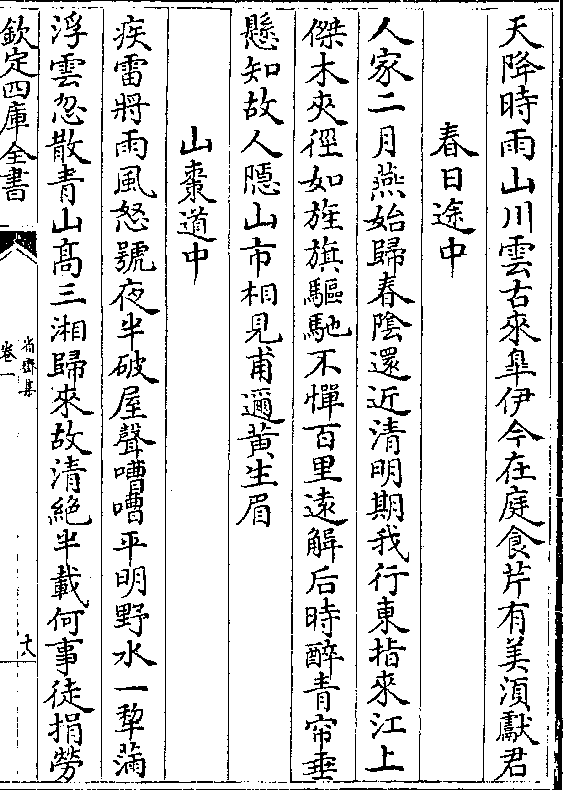 天降時雨山川雲古來皐伊今在庭食芹有美湏獻君
春日途中
人家二月燕始歸春陰還近清明期我行東指來江上
傑木夾徑如旌旗驅馳不憚百里遠解后時醉青帘垂
懸知故人隱山市相見甫邇黄生眉
山棗道中
疾雷將雨風怒號夜半破屋聲嘈嘈平明野水一犂滿
浮雲忽散青山髙三湘歸來故清絶半載何事徒捐勞
欽定四庫全書
省齋集
卷一
十八